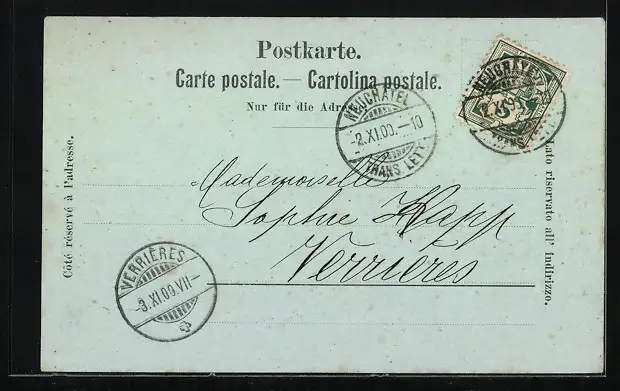 Postkarte.
Carte postale. — Cartolina postale.
Nur für die Adre
NEUCHATEL
-2.XI.00.-10
TRANS. LETT.
NEUCHATEL
5
TRANS
Côté réservé à l'adresse.
Lato riservato all' indirizzo.
Mademoiselle
Sophie Kapp
Verrières
VERRIÈRES
-3.XI.00.VII-